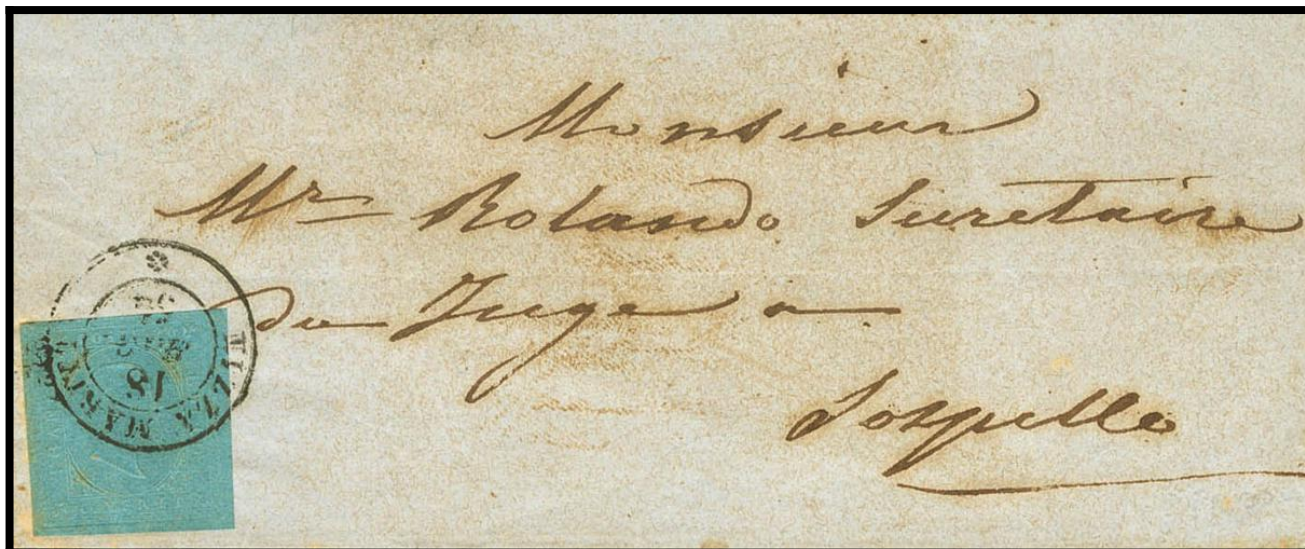 Monsieur
Mr Rolando Secretaire
du Juge a
Sospello
NIZZA MARIT
18